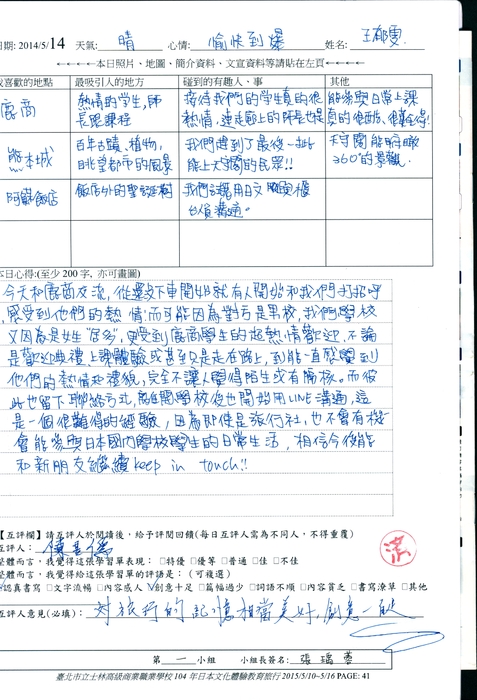 日期: 2014/5/14 天氣: 晴 心情: 愉快到爆 姓名: 王郁
←←←←本日照片、地圖、簡介資料、文宣資料等請貼在左頁←←←←
我喜歡的地點 最吸引人的地方 碰到的有趣人、事 其他
鹿商 熱情的學生,師長跟課程 接待我們的學生真的很熱情,連走廊上的師長也是 能參與日常上課真的很酷,很值得!
熊本城 百年古蹟、植物,眺望都市的風景 我們遇到了最後一批能上天守閣的民眾!! 天守閣能俯瞰360°的景觀.
阿蘇飯店 飯店外的聖誕樹 我們試著用日文跟櫃台人員溝通。
本日心得:(至少 200 字, 亦可畫圖)
今天和鹿商交流,從遊覽車開始就有人開始和我們打招呼
感受到他們的熱情,而可能因為對方是男校,我們學校
又因為是女生"居多",更受到鹿商學生的超熱情歡迎,不論
是歡迎典禮、上課體驗或甚至只是走在路上,到能一直感覺到
他們的熱情和禮貌,完全不讓人覺得陌生或有隔核。而彼
此也留下聯絡方式,離開學校後也開始用LINE溝通,這
是一個很難得的經驗,因為即使是旅行社,也不會有機
會能參與日本國內學校學生的日常生活,相信今後能
和新朋友繼續keep in touch!!
【互評欄】請互評人於閱讀後,給予評閱回饋(每日互評人需為不同人,不得重覆)
互評人: 陳
整體而言,我覺得這張學習單表現: □特優 □優等 □普通 □佳 □不佳
整體而言,我覺得給這張學習單的評語是: (可複選)
認真書寫 □文字流暢 □內容感人 V創意十足 □篇幅過少 □詞語不順 □內容貧乏 □書寫潦草 □其他
互評人意見(必填): 對旅行的記憶相當美好,創意一
第 一 小組 小組長簽名: 張瑀蓉
臺北市立士林高級商業職業學校 104 年日本文化體驗教育旅行 2015/5/10~5/16 PAGE: 41